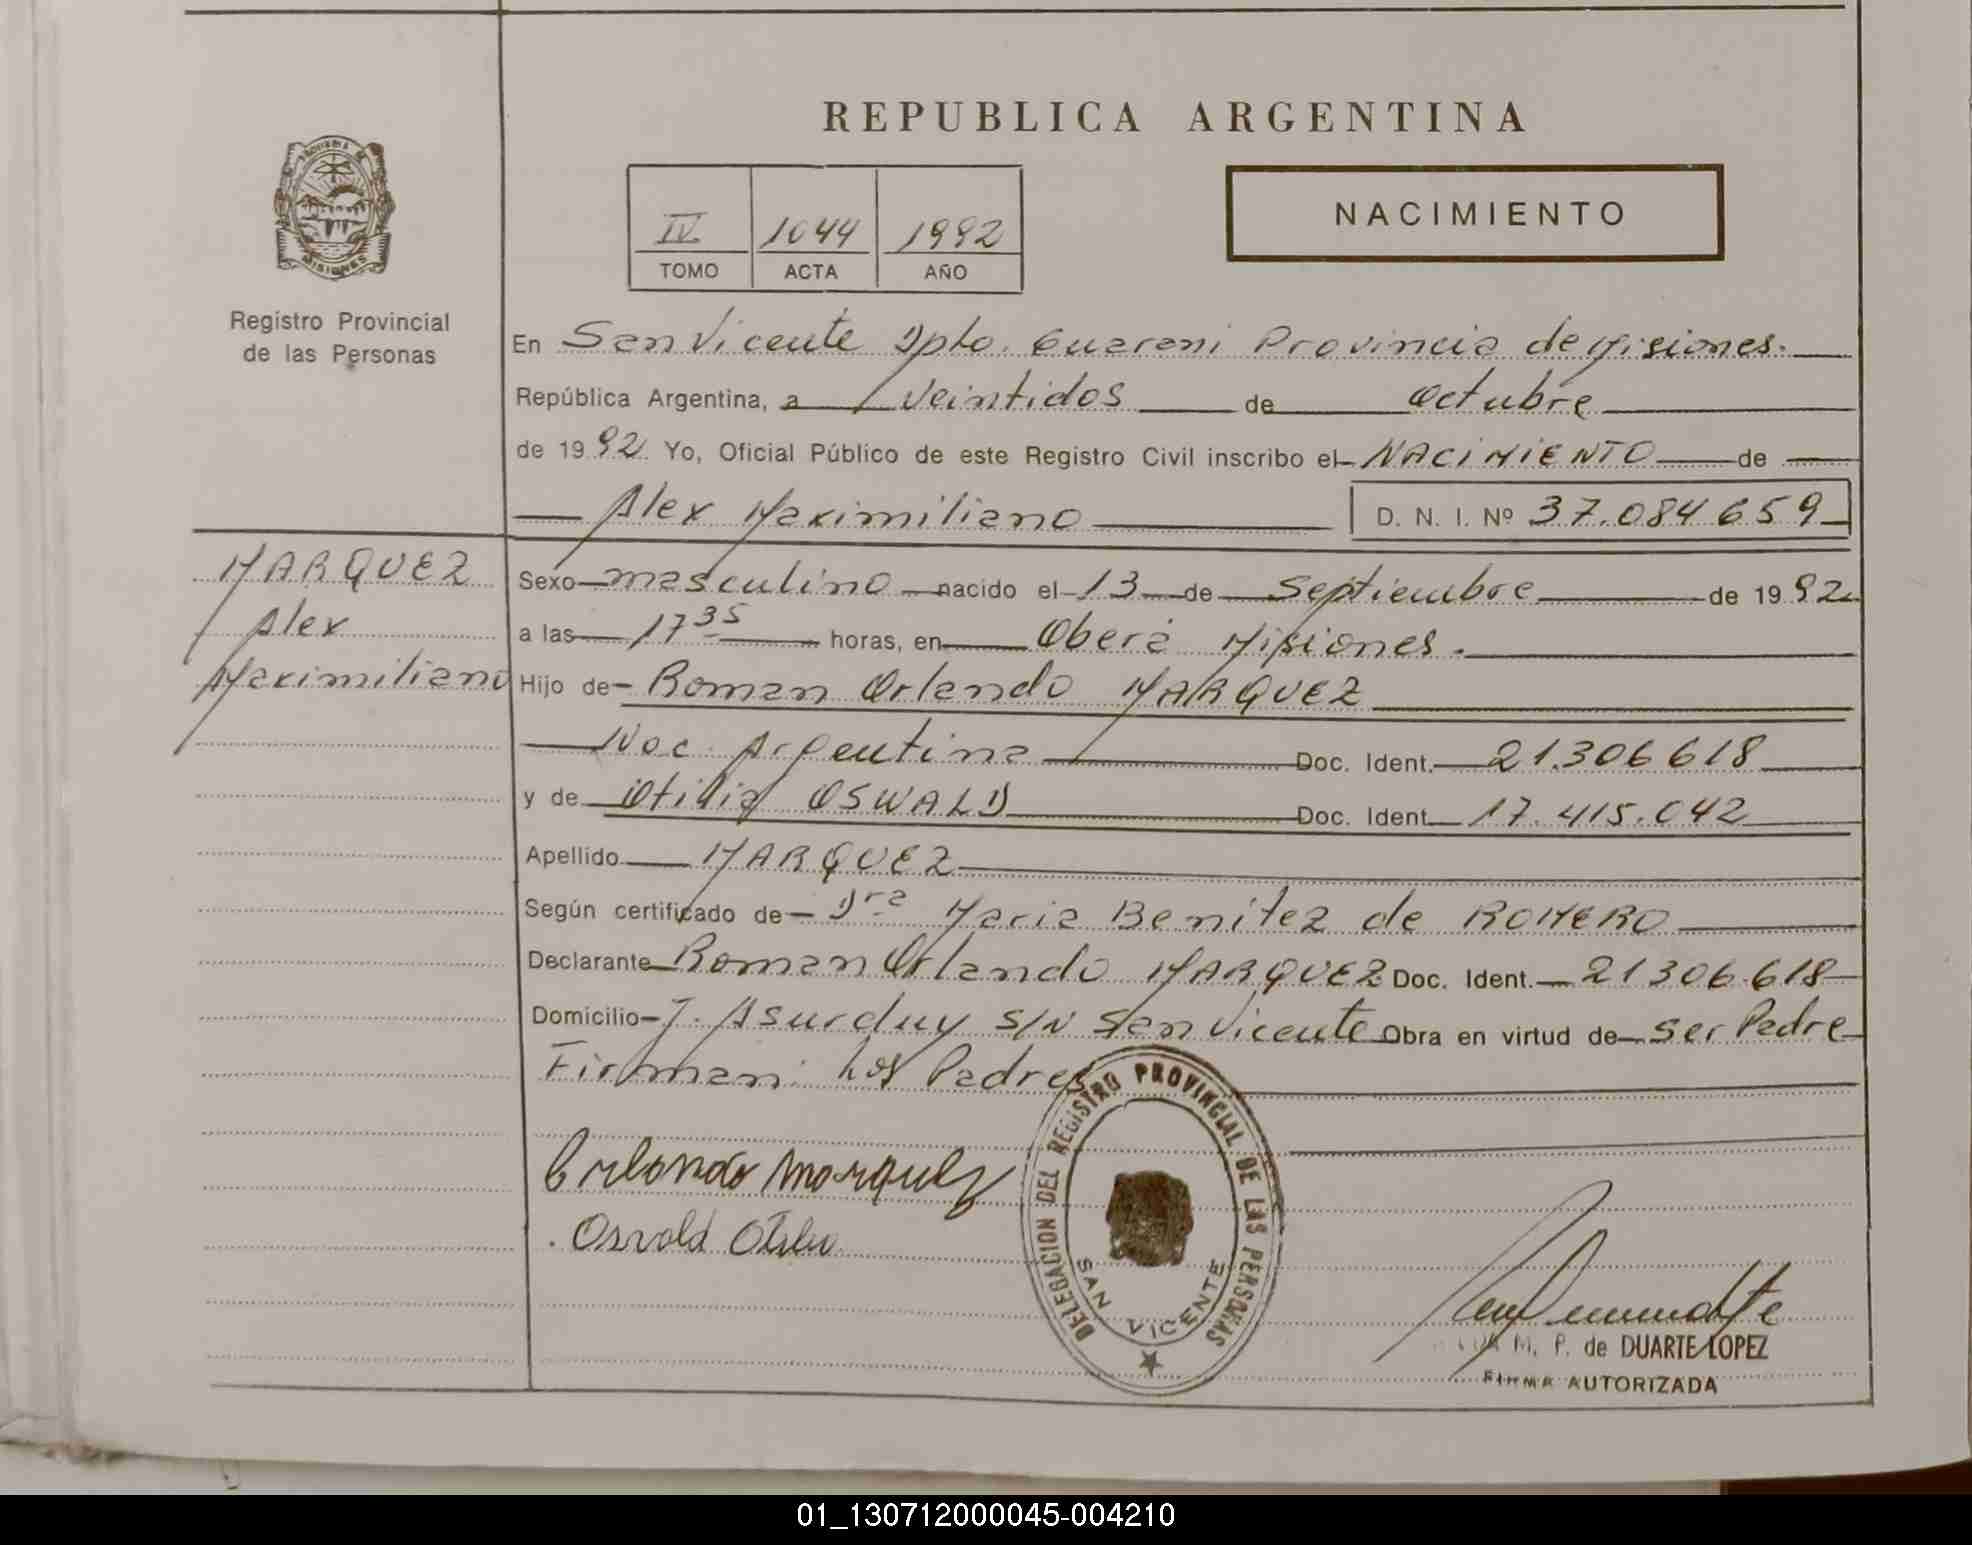 REPUBLICA ARGENTINA
NACIMIENTO
IV 1044 1992
TOMO ACTA AÑO
Registro Provincial
de las Personas
MISIONES
En San Vicente Dpto. Guarani Provincia de Misiones.
República Argentina, a veintidos de Octubre
de 1992 Yo, Oficial Público de este Registro Civil inscribo el NACIMIENTO de
Alex Maximiliano D. N. I. Nº 37.084 659
MARQUEZ
Alex
Maximiliano
Sexo masculino nacido el 13 de Septiembre de 1992
a las 17 35 horas, en Oberá Misiones.
Hijo de Roman Orlando MARQUEZ
Nac. Argentina Doc. Ident. 21.306 618
y de Otilia OSWALD Doc. Ident. 17.415.042
Apellido MARQUEZ
Según certificado de Dra Maria Benitez de ROMERO
Declarante Roman Orlando MARQUEZ Doc. Ident. 21 306.618
Domicilio J. Asurduy S/N San Vicente Obra en virtud de Ser Padre
Firman: Los Padres
Orlando Marquez
Osvald Otilia
DELEGACION DEL REGISTRO PROVINCIAL DE LAS PERSONAS
SAN VICENTE
M. P. de DUARTE LOPEZ
FIRMA AUTORIZADA
01_130712000045-004210